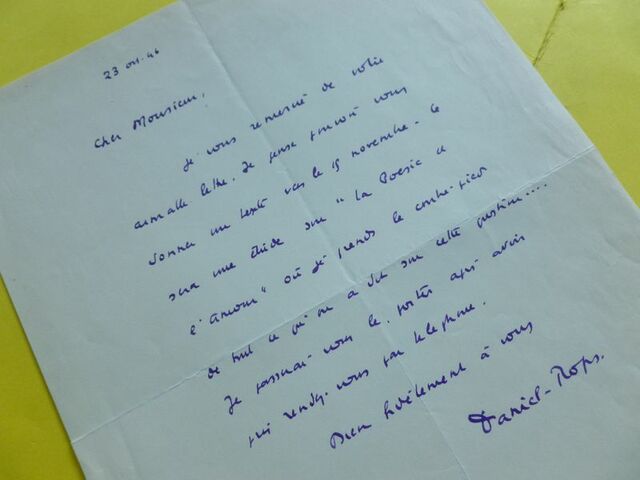 23 oct. 46
Cher Monsieur,
Je vous remercie de votre
aimable lettre. Je pense pouvoir vous
donner un texte vers le 15 novembre. Ce
sera une étude sur "La Poésie et
l'Amour" où je prends le contre-pied
de tout ce qu'on a dit sur cette question....
Je passerai vous le porter après avoir
pris rendez-vous par téléphone.
Bien fidèlement à vous
Daniel-Rops.